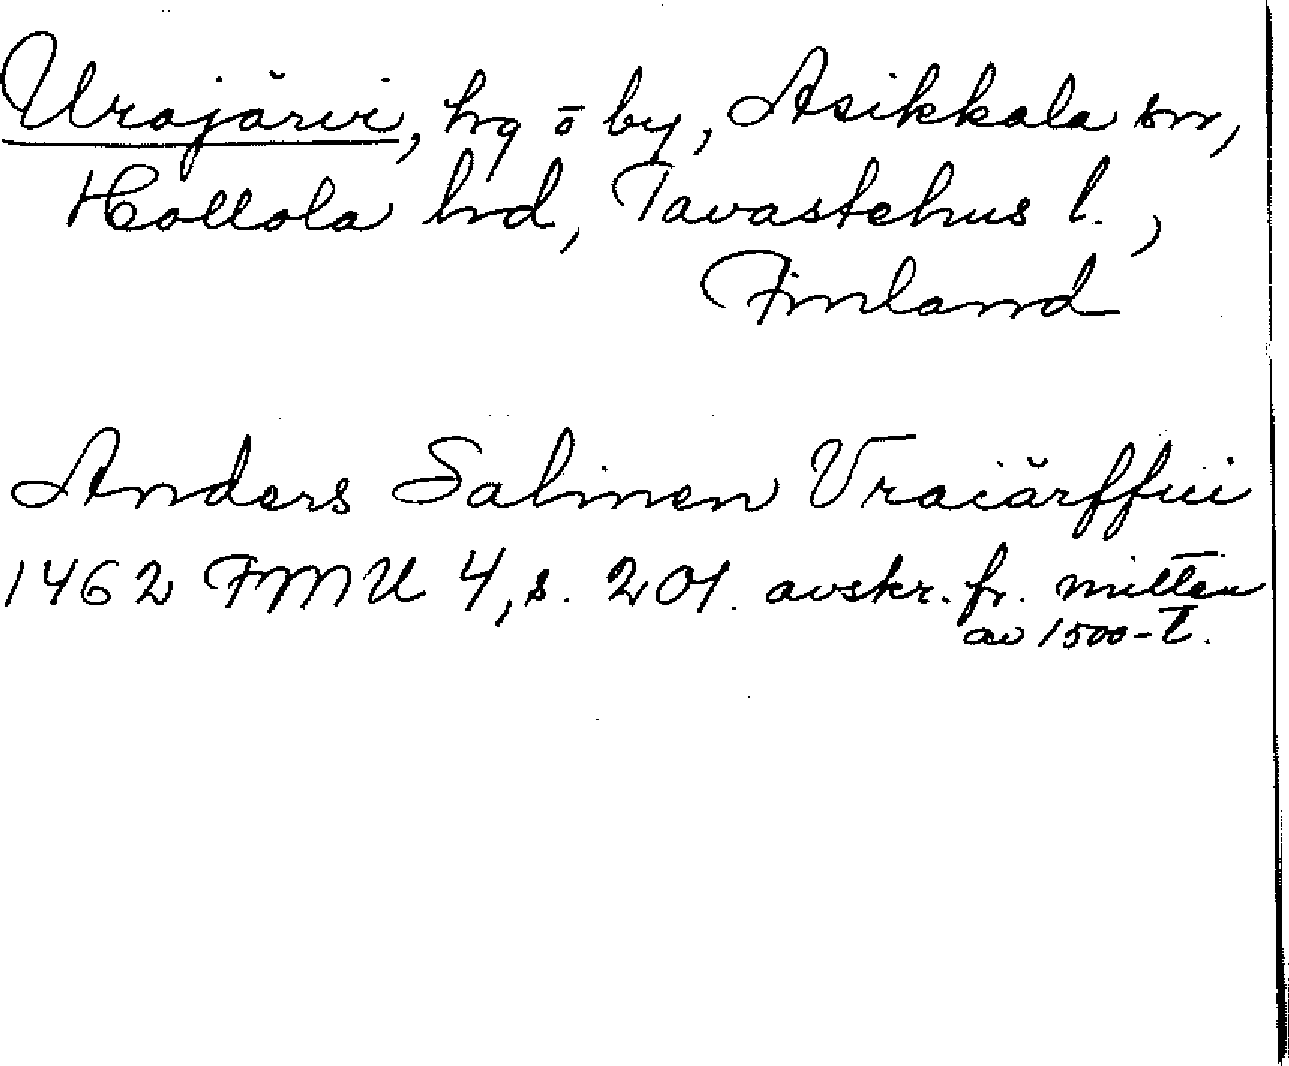 Urajärvi, hrg o by, Asikkala sn,
Hollola hrd, Tavastehus l.,
Finland
Anders Salmen Vraiärffui
1462 FMU 4, s. 201. avskr. fr. mitten
av 1500-t.